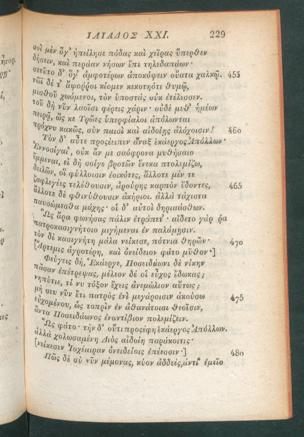 ΙΛΙΑΔΟΣ ΧΧΙ. 229
σοὶ μὲν ὅγ' ἠπείλησε πόδας καὶ χεῖρας ὕπερθεν
δήσειν, καὶ περάαν νήσων ἔπι τηλεδαπάων·
στεῦτο δ' ὅγ' ἀμφοτέρων ἀποκόψειν οὔατα χαλκῷ. 455
νῶϊ δέ τ' ἄψοῤῥοι κίομεν κεκοτηότι θυμῷ,
μισθοῦ χωόμενοι, τὸν ὑποστὰς οὐκ ἐτέλεσσεν.
τοῦ δὴ νῦν λαοῖσι φέρεις χάριν· οὐδὲ μεθ' ἡμέων
πειρᾷ, ὥς κε Τρῶες ὑπερφίαλοι ἀπόλωνται
πρόχνυ κακῶς, σὺν παισὶ καὶ αἰδοίῃς ἀλόχοισιν! 460
Τὸν δ' αὖτε προσέειπεν ἄναξ ἑκάεργος Ἀπόλλων·
Ἐννοσίγαι', οὐκ ἄν με σαόφρονα μυθήσαιο
ἔμμεναι, εἰ δὴ σοίγε βροτῶν ἕνεκα πτολεμίξω,
δειλῶν, οἳ φύλλοισιν ἐοικότες, ἄλλοτε μέν τε
ζαφλεγέες τελέθουσιν, ἀρούρης καρπὸν ἔδοντες, 465
ἄλλοτε δὲ φθινύθουσιν ἀκήριοι. ἀλλὰ τάχιστα
παυσώμεσθα μάχης· οἱ δ' αὐτοὶ δηριαάσθων.
Ὣς ἄρα φωνήσας πάλιν ἐτράπετ'· αἴδετο γάρ ῥα
πατροκασιγνήτοιο μιγήμεναι ἐν παλάμῃσιν.
τὸν δὲ κασιγνήτη μάλα νείκεσε, πότνια θηρῶν· 470
[Ἄρτεμις ἀγροτέρη, καὶ ὀνείδειον φάτο μῦθον·]
Φεύγεις δὴ, Ἑκάεργε, Ποσειδάωνι δὲ νίκην
πᾶσαν ἐπέτρεψας, μέλεον δέ οἱ εὖχος ἔδωκας;
νηπύτιε, τί νυ τόξον ἔχεις ἀνεμώλιον αὔτως;
μή σευ νῦν ἔτι πατρὸς ἐνὶ μεγάροισιν ἀκούσω 475
εὐχομένου, ὡς τοπρὶν ἐν ἀθανάτοισι θεοῖσιν,
ἄντα Ποσειδάωνος ἐναντίβιον πολεμίζειν.
Ὣς φάτο· τὴν δ' οὔτι προσέφη ἑκάεργος Ἀπόλλων.
ἀλλὰ χολωσαμένη Διὸς αἰδοίη παράκοιτις·
[νείκεσεν Ἰοχέαιραν ὀνειδείοις ἐπέεσσιν·] 480
Πῶς δὲ σὺ νῦν μέμονας, κύον ἀδδεὲς, ἀντί' ἐμεῖο